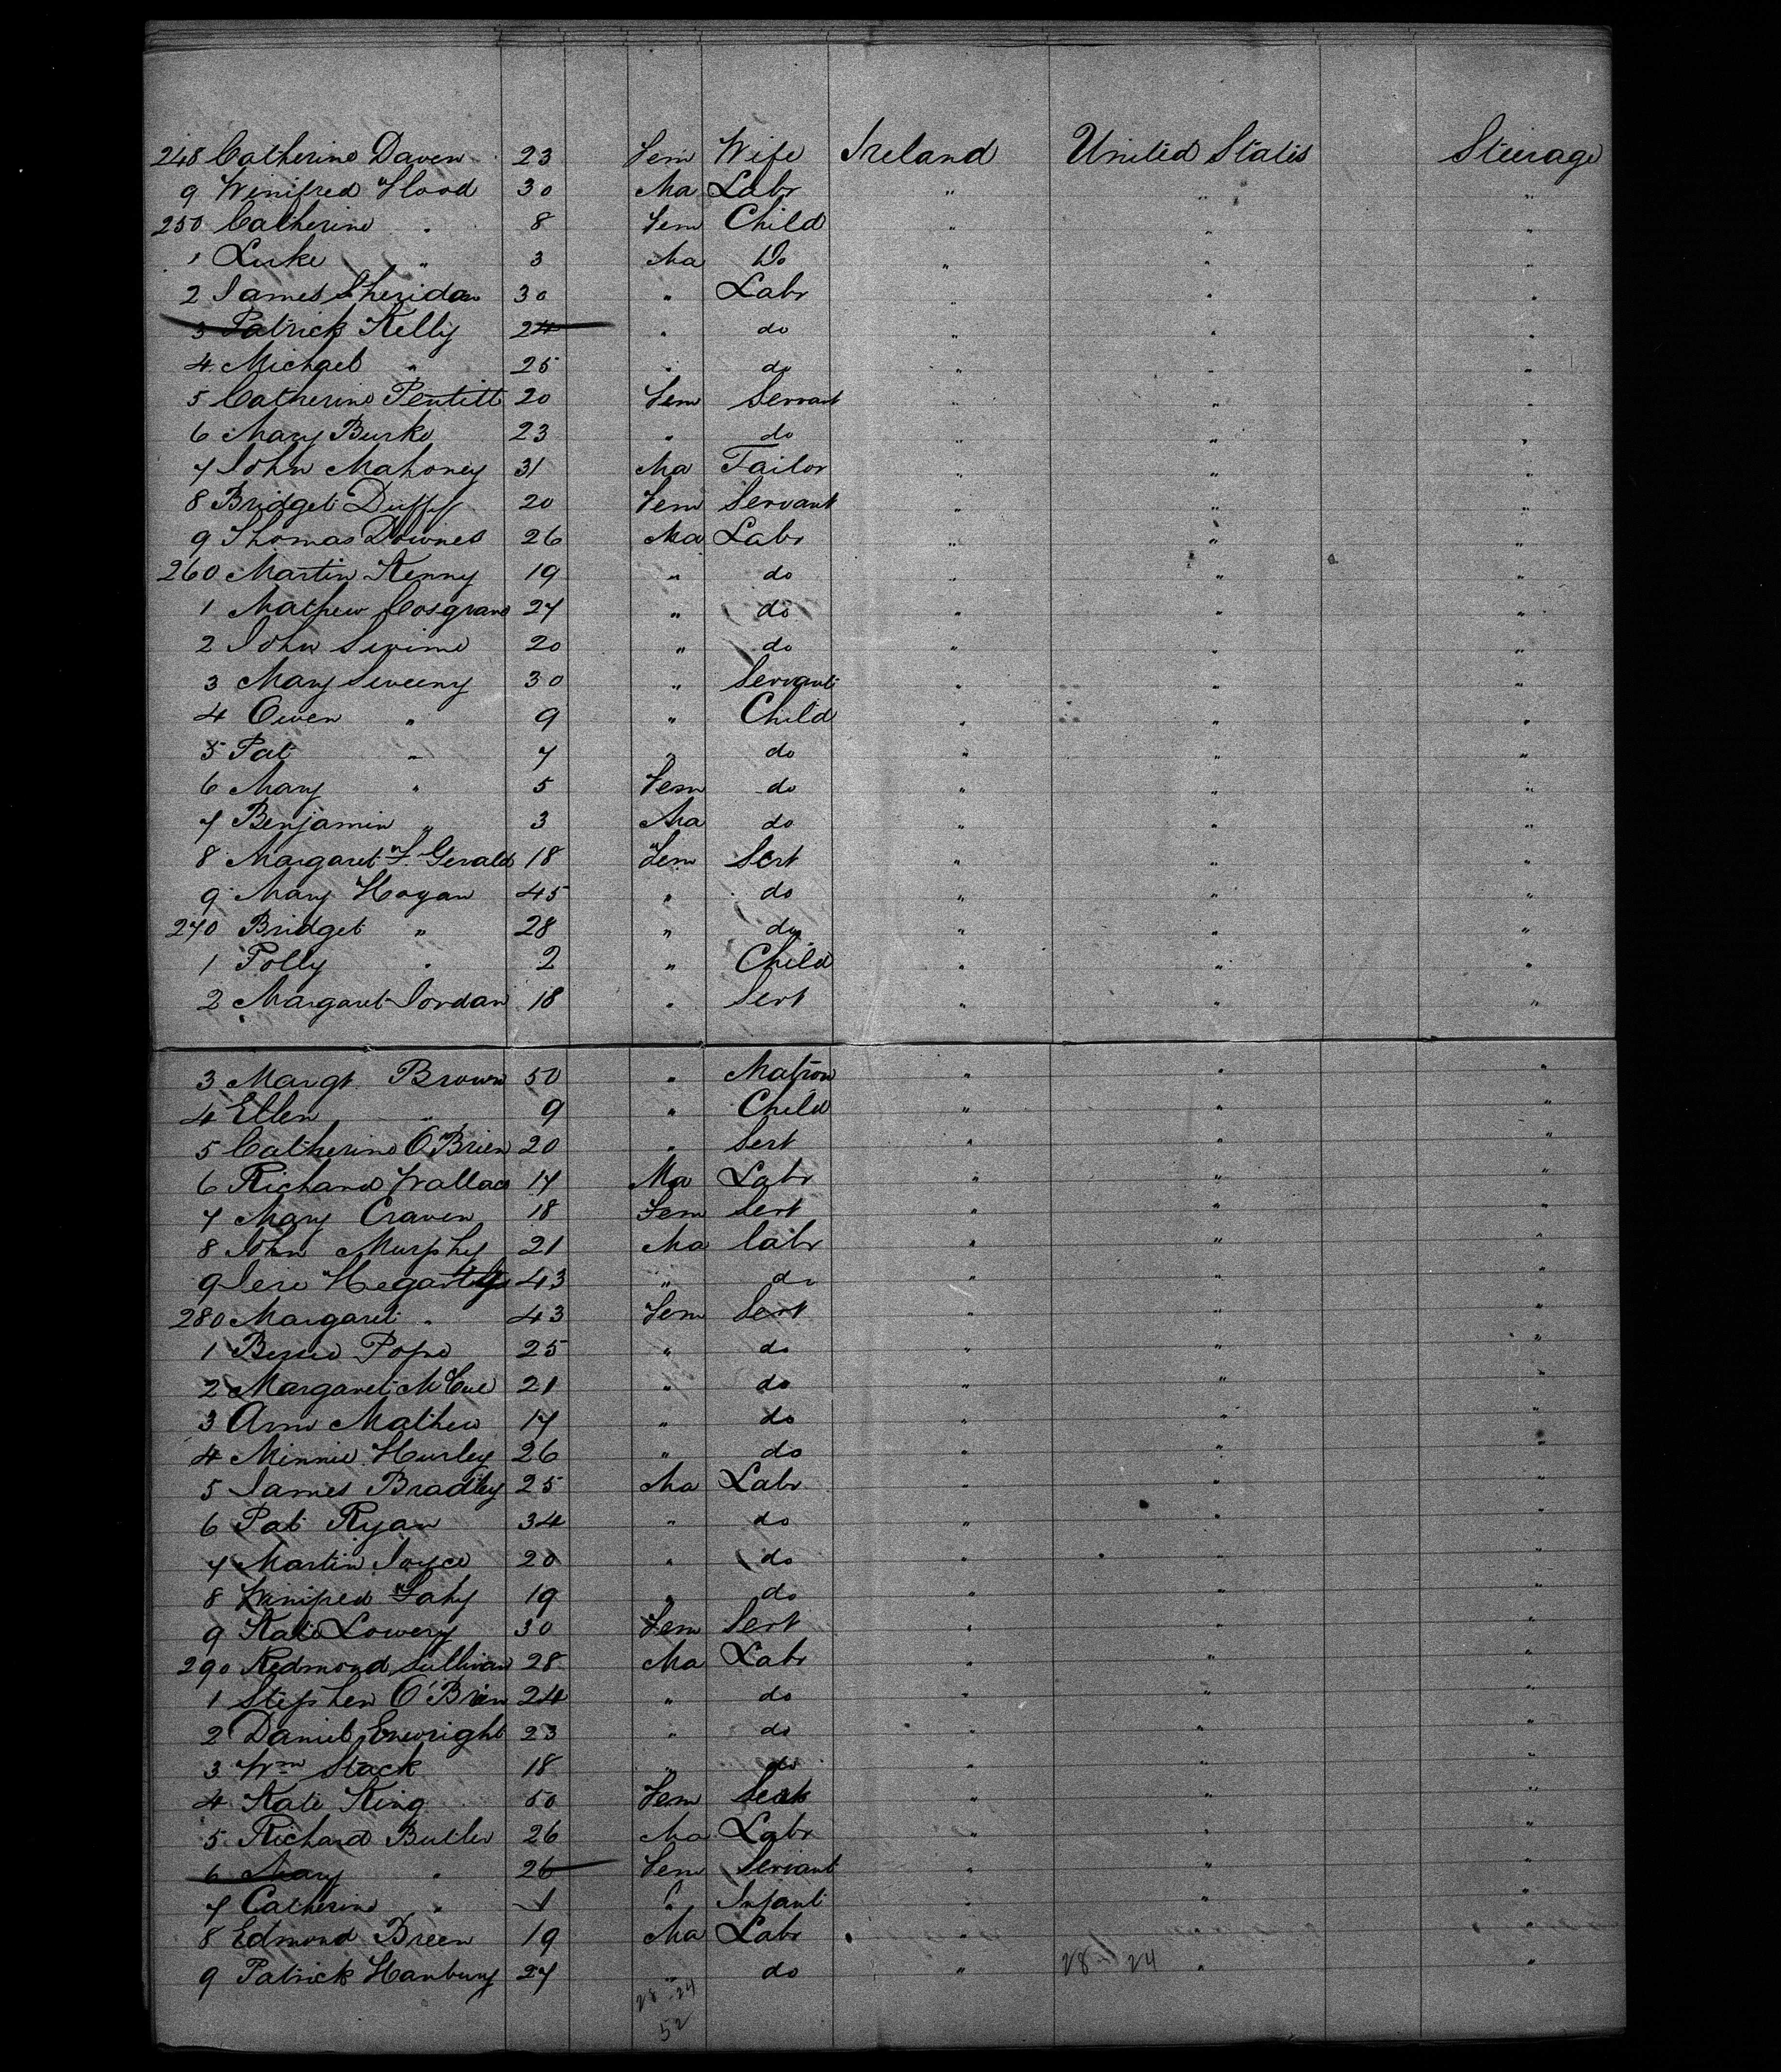 248 Catherine Daven 23 Fem Wife Ireland United States Steerage
9 Winifred Flood 30 Ma Labr " " "
250 Catherine " 8 Fem Child " " "
1 Luke " 3 Ma Do " " "
2 James Sheridan 30 " Labr " " "
3 Patrick Kelly 24 " do " " "
4 Michael " 25 " do " " "
5 Catherine 20 Fem Servant " " "
6 Mary Burke 23 " do " " "
7 John Mahoney 31 Ma Tailor " " "
8 Bridget Duffy 20 Fem Servant " " "
9 Thomas Downes 26 Ma Labr " " "
260 Martin Kenny 19 " do " " "
1 Mathew Cosgrave 27 " do " " "
2 John 20 " do " " "
3 Mary Sweeny 30 " Servant " " "
4 Owen " 9 " Child " " "
5 Pat " 7 " do " " "
6 Mary " 5 Fem do " " "
7 Benjamin " 3 Ma do " " "
8 Margaret F. Gerald 18 Fem Sert " " "
9 Mary Hogan 45 " do " " "
270 Bridget " 28 " do " " "
1 Polly " 2 " Child " " "
2 Margaret Jordan 18 " Sert " " "
3 Margt Brown 50 " Matron " " "
4 Ellen " 9 " Child " " "
5 Catherine O'Brien 20 " Sert " " "
6 Richard Wallace 17 Ma Labr " " "
7 Mary Craven 18 Fem Sert " " "
8 John Murphy 21 Ma labr " " "
9 Jere Hegarty 43 " do " " "
280 Margaret " 43 Fem Sert " " "
1 Bessie Pope 25 " do " " "
2 Margaret McCue 21 " do " " "
3 Ann Mathew 17 " do " " "
4 Minnie Hurley 26 " do " " "
5 James Bradley 25 Ma Labr " " "
6 Pat Ryan 34 " do " " "
7 Martin Joyce 20 " do " " "
8 Winifred Fahy 19 " do " " "
9 Kate Lowery 30 Fem Sert " " "
290 Redmond Sullivan 28 Ma Labr " " "
1 Stephen O'Brien 24 " do " " "
2 Daniel Enwright 23 " do " " "
3 Wm Stack 18 " do " " "
4 Kate King 50 Fem Sert " " "
5 Richard Butler 26 Ma Labr " " "
6 Mary " 26 Fem Servant " " "
7 Catherine " 1 " Infant " " "
8 Edmond Breen 19 Ma Labr " " "
9 Patrick Hanbury 27 " do " 28-24 " "
28-24
52